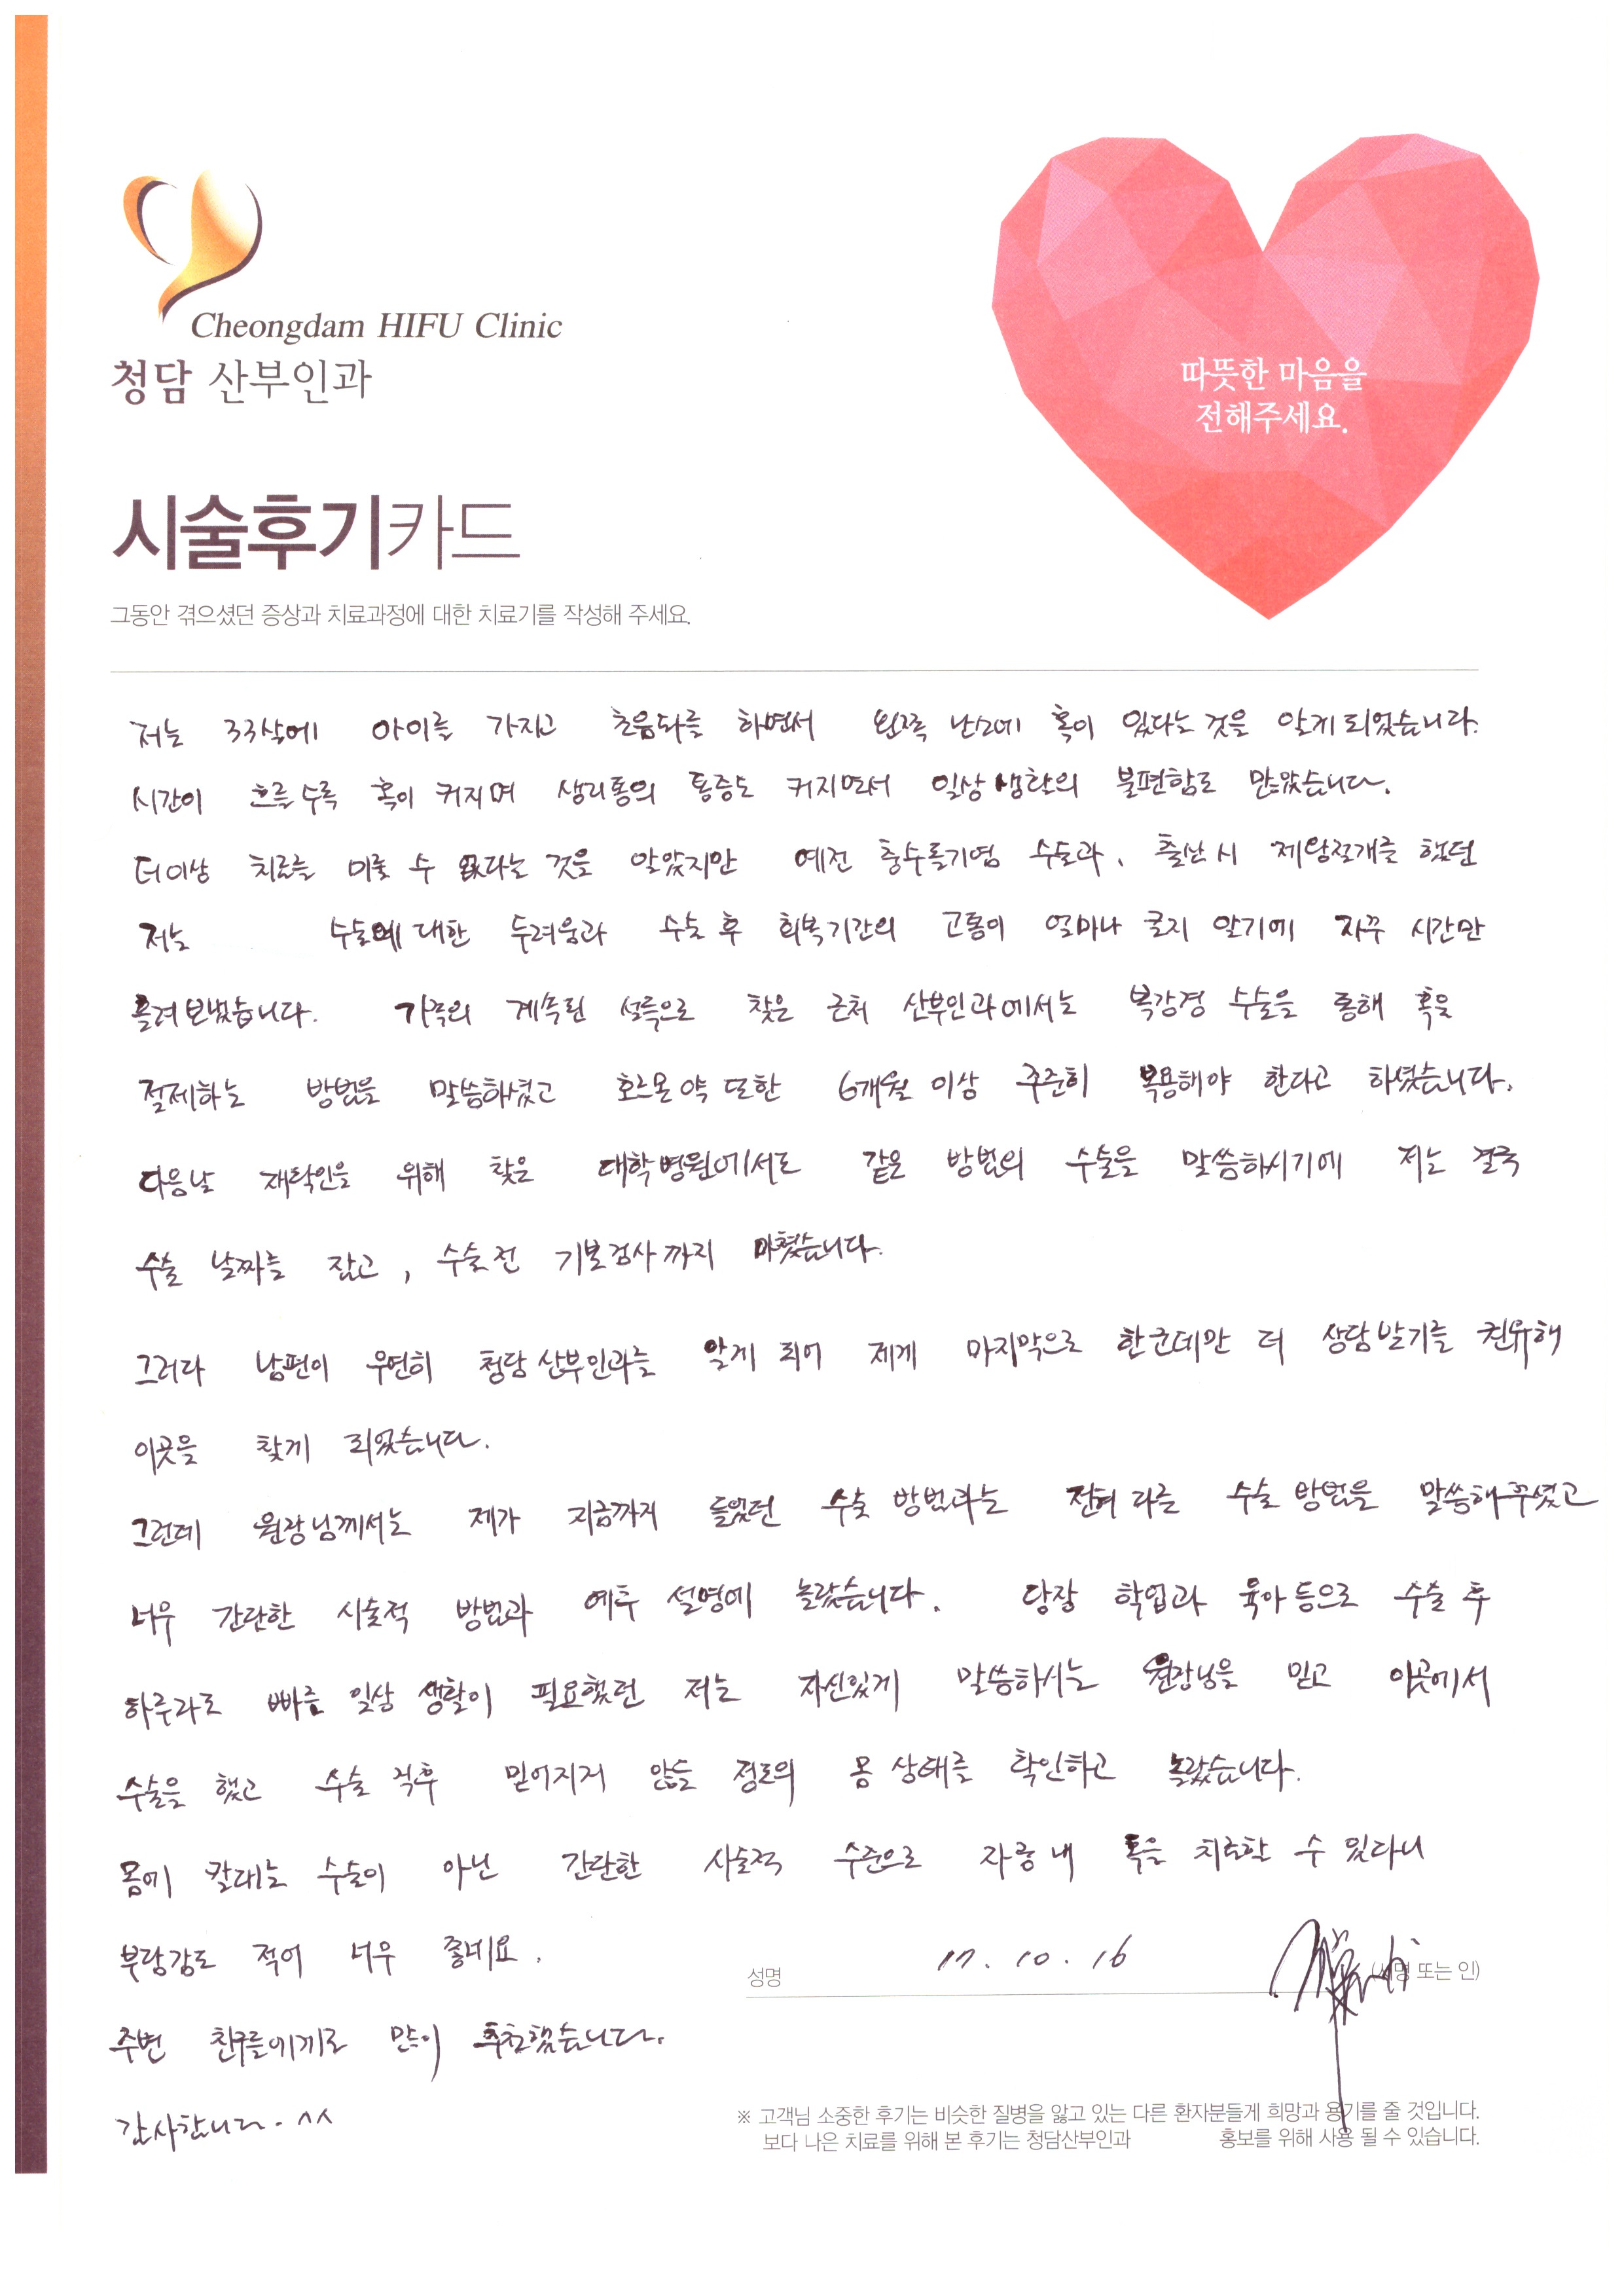 Cheongdam HIFU Clinic
청담 산부인과
따뜻한 마음을
전해주세요.
시술후기카드
그동안 겪으셨던 증상과 치료과정에 대한 치료기를 작성해 주세요.
저는 33살에 아이를 가지고 초음파를 하면서 왼쪽 난소에 혹이 있다는 것을 알게 되었습니다.
시간이 흐를수록 혹이 커지며 생리통의 통증도 커지면서 일상 생활의 불편함도 많았습니다.
더이상 치료를 미룰 수 없다는 것을 알았지만 예전 충수돌기염 수술과, 출산시 제왕절개를 했던
저는 수술에 대한 두려움과 수술 후 회복기간의 고통이 얼마나 클지 알기에 자꾸 시간만
흘려보냈습니다. 가족의 계속된 설득으로 찾은 근처 산부인과에서는 복강경 수술을 통해 혹을
절제하는 방법을 말씀하셨고 호르몬약 또한 6개월 이상 꾸준히 복용해야 한다고 하셨습니다.
다음날 재확인을 위해 찾은 대학병원에서도 같은 방법의 수술을 말씀하시기에 저는 결국
수술 날짜를 잡고, 수술전 기본검사까지 마쳤습니다.
그러다 남편이 우연히 청담산부인과를 알게 되어 제게 마지막으로 한군데만 더 상담받기를 권유해
이곳을 찾게 되었습니다.
그런데 원장님께서는 제가 지금까지 들었던 수술 방법과는 전혀 다른 수술 방법을 말씀해주셨고
너무 간단한 시술적 방법과 예후 설명에 놀랐습니다. 당장 학업과 육아등으로 수술 후
하루라도 빠른 일상 생활이 필요했던 저는 자신있게 말씀하시는 원장님을 믿고 이곳에서
수술을 했고 수술 직후 믿어지지 않을 정도의 몸 상태를 확인하고 놀랐습니다.
몸에 칼대는 수술이 아닌 간단한 시술적 수준으로 자궁내 혹을 치료할 수 있다니
부담감도 적어 너무 좋네요.
성명 17. 10. 16 (서명 또는 인)
주변 친구들에게도 많이 추천했습니다.
감사합니다. ^^
※ 고객님 소중한 후기는 비슷한 질병을 앓고 있는 다른 환자분들게 희망과 용기를 줄 것입니다.
보다 나은 치료를 위해 본 후기는 청담산부인과 홍보를 위해 사용 될 수 있습니다.